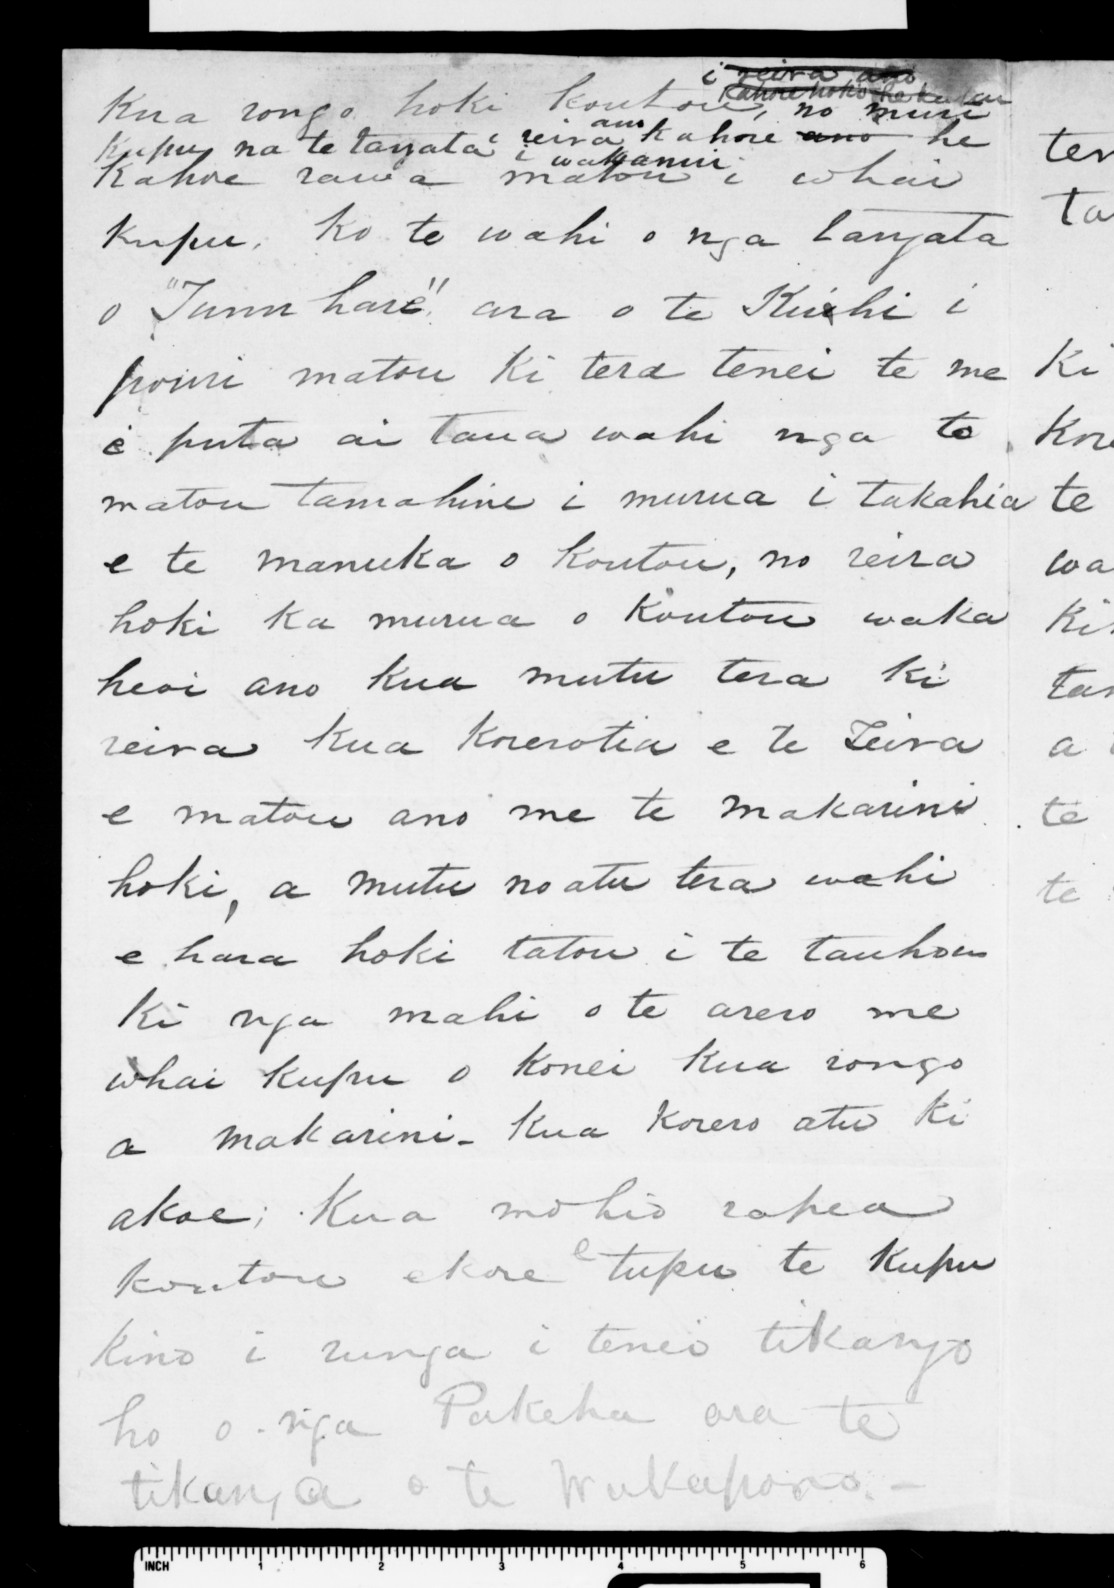 i reira ano
Kahore hoki he kupu
Kua rongo hoki koutou, no muri
ano
kupu na te tangata i reira kahore ano he
i wakanui
Kahore rawa matou i whai
kupu. Ko te wahi o nga tangata
o "Tunu hare" ara o te Kuihi i
pouri matou ki tera tenei te me
i puta ai taua wahi nga to
matou tamahine i murua i takahia
e te manuka o koutou, no reira
hoki ka murua o koutou waka
heoi ano kua mutu tera ki
reira kua korerotia e te Teira
e matou ano me te Makarini
hoki, a mutu noatu tera wahi
e hara hoki tatou i te tauhou
ki nga mahi o te arero me
whai kupu o konei kua rongo
a Makarini - kua korero atu ki
akoe; kua mohio rapea
koutou ekore e tupu te kupu
kino i runga i tenei tikanga
ho o nga Pakeha ara te
tikanga o te Wakapono. -
ter
ta
Ki
Kore
te
wa
Ki
tan
a
te
te